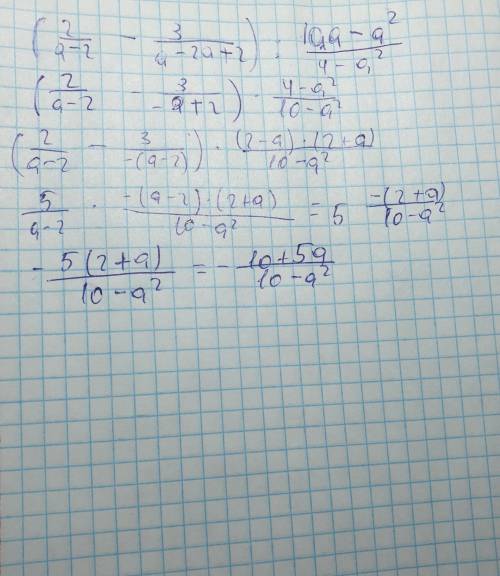 (2/(a-2) - 3/(a-2a+2)) : (10a-a²)/(4-a²)
(2/(a-2) - 3/(-a+2)) · (4-a²)/(10-a²)
(2/(a-2) - 3/(-(a-2))) · ((2-a)·(2+a))/(10-a²)
5/(a-2) · (-(a-2)·(2+a))/(10-a²) = 5 (-(2+a))/(10-a²)
- (5(2+a))/(10-a²) = - (10+5a)/(10-a²)